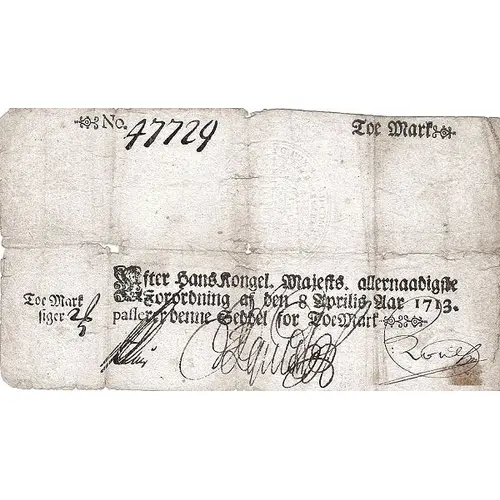 No. 47729
Toe Mark
Efter Hans Kongel. Majests. allernaadigste
Forordning af den 8 Aprilis, Aar 1713.
passerer denne Seddel for Toe Mark
Toe Mark
siger 2